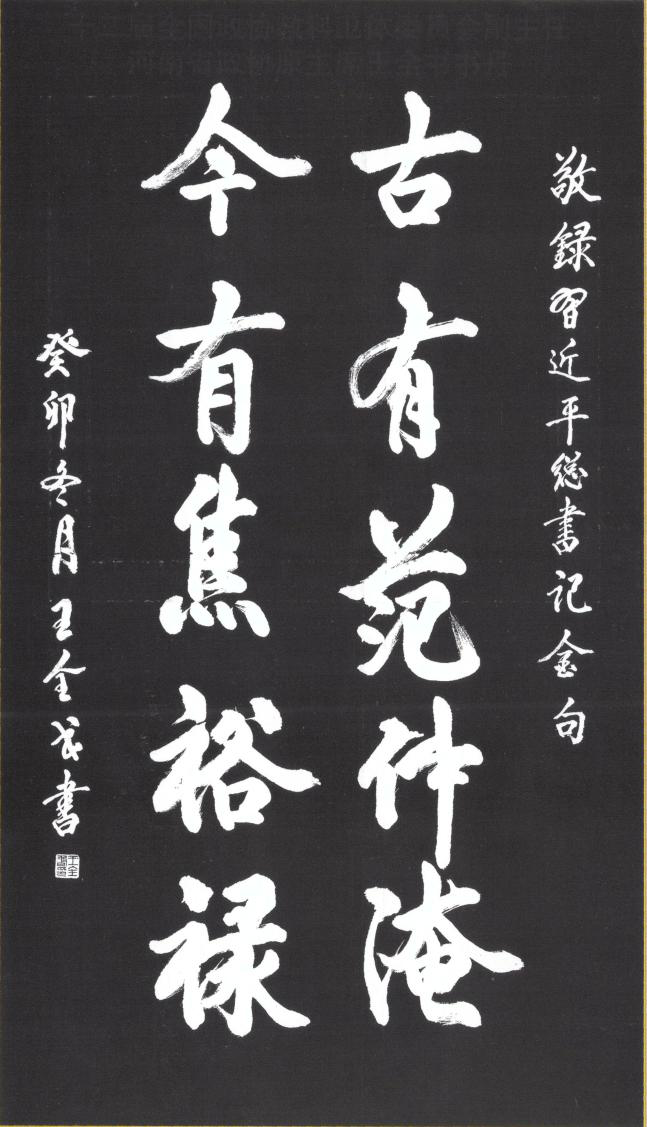 敬録習近平總書記金句
古有范仲淹
今有焦裕禄
癸卯冬月王全書書